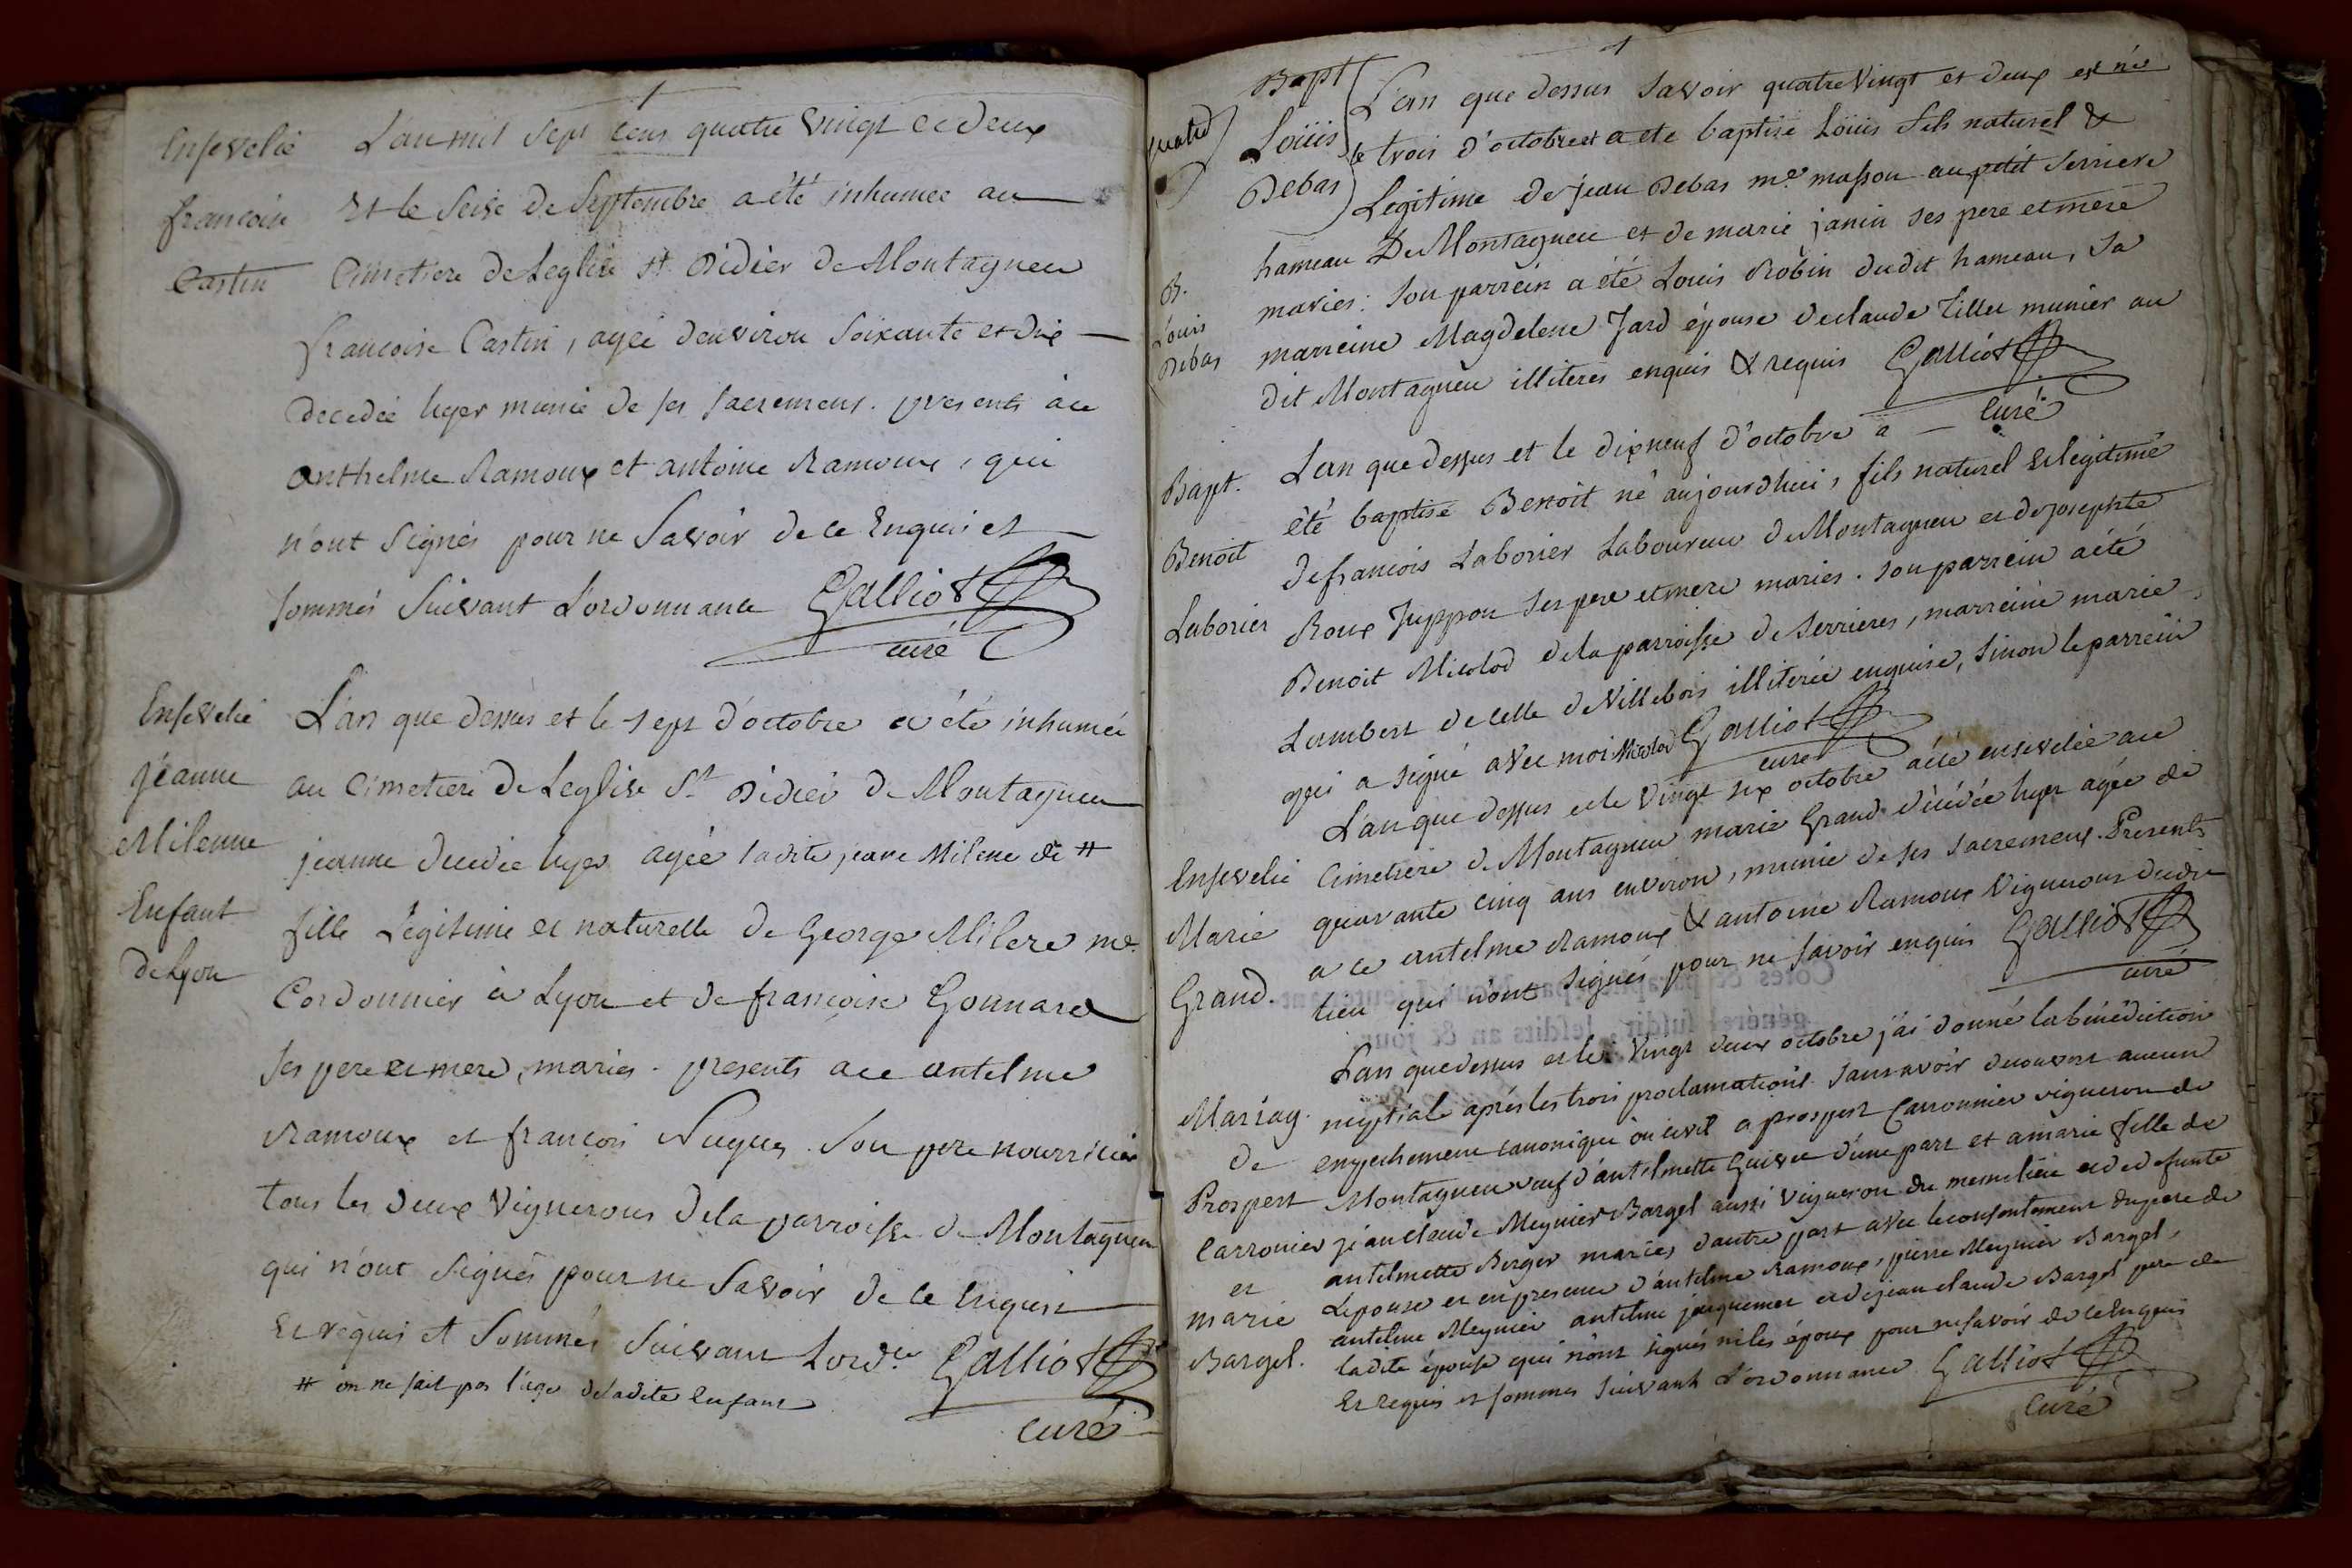 Ensevelie
francoise
Castin
L'an mil sept cens quatre vingt et deux
Et le seise de septembre a été inhumée au
Cimetiere de Leglise st. Didier de Montagneu
francoise Castin, agée d'environ soixante et dix
decedée hyer munie de ses sacremens. presents à ce
anthelme Ramoux et antoine Ramoux, qui
n'ont signés pour ne savoir de ce Enquis et
sommés suivant L'ordonnance Galliot
curé
Ensevelie
jéanne
Milenne
Enfant
de Lyon
L'an que dessus et le sept d'octobre a été inhumée
au Cimetiere de Leglise St Didier de Montagneu
jeanne decedée hyer agée ladite jeane Milene de #
fille Légitime et naturelle de George Milere me
Cordonnier à Lyon et de francoise Gonnard
ses pere et mere, mariés. presents a ce antelme
Ramoux et francois Nugues. son pere nourricier
tous les deux Vignerons de la parroisse de Montagneu
qui n'ont signés pour ne savoir de ce Enquis
Et requis et sommés suivant Lord.ce Galliot
# on ne sait pas l'age de ladite Enfant
Curé
Bapt
Loüis
Debas
B.
Louis
Debas
L'an que dessus savoir quatre Vingt et deux est né
le trois d'octobre et a ete baptisé Loüis fils naturel &
Légitime de jean Debas me masson au petit serriere
hameau De Montagneu et de marie janin ses pere et mere
mariés: son parrein a été Louis Robin dudit hameau, sa
marreine Magdelene Jard épouse de claude Tillet munier au
dit Montagneu illiteres enquis & requis Galliot
Curé
Bapt.
Benoit
Laborier
L'an que dessus et le dixneuf d'octobre a
été baptisé Benoit né aujourdhui, fils naturel et légitime
de francois Laborier Laboureur de Montagneu et de josephte
Roux Juppon ses pere et mere mariés. son parrein a été
Benoit Micolod de la parroisse de Serrieres, marreine marie
Lambert de celle de Villebois illiterée enquise, sinon le parrein
qui a signé avec moi Micolod Galliot
curé
Ensevelie
Marie
Grand.
L'an que dessus et le Vingt six octobre a été ensevelie au
Cimetiere de Montagneu marie Grand décédée hyer agée de
quarante cinq ans environ, munie de ses sacremens. Presents
a ce antelme Ramoux & antoine Ramoux Vignerons dudit
lieu qui n'ont signés pour ne savoir enquis Galliot
curé
Mariag.
de
Prospert
Carronier
et
marie
Bargel.
L'an que dessus et le Vingt deux octobre j'ai donné la bénédiction
nuptiale après les trois proclamations sans avoir decouvert aucun
empechement canonique ou civil a prospert Carronnier vigneron de
Montagneu veuf d'antelmette d'une part et a marie fille de
jean claude Meynier Bargel aussi Vigneron du meme lieu et de defunte
antelmette Berger mariés d'autre part avec le consentement du pere de
L'epouse et en presence d'antelme Ramoux, pierre Meynier Bargel,
antelme Meynier antelme juquemet et de jean claude Bargel pere de
ladite épouse qui n'ont signés ni les époux pour ne savoir de ce Enquis
Et requis et sommés suivant L'ordonnance Galliot
Curé